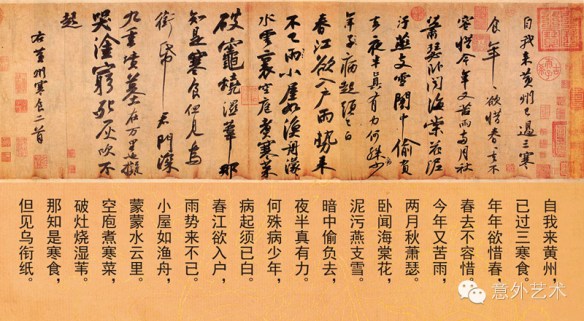 自我来黄州已過三寒
食年年欲惜春春去不
容惜今年又苦雨兩月秋
蕭瑟卧聞海棠花泥
汙燕支雪闇中偷負
去夜半真有力何殊病少
年子病起頭已白
春江欲入户雨勢来
不已雨小屋如漁舟濛濛
水雲裏空庖煮寒菜
破竈燒濕葦那
知是寒食但見烏
銜帋君門深
九重墳墓在萬里也擬
哭塗窮死灰吹不
起
右黄州寒食二首
自我来黄州，
已过三寒食。
年年欲惜春，
春去不容惜。
今年又苦雨，
两月秋萧瑟。
卧闻海棠花，
泥污燕支雪。
暗中偷负去，
夜半真有力。
何殊病少年，
病起须已白。
春江欲入户，
雨势来不已。
小屋如渔舟，
蒙蒙水云里。
空庖煮寒菜，
破灶烧湿苇。
那知是寒食，
但见乌衔纸。
意外艺术